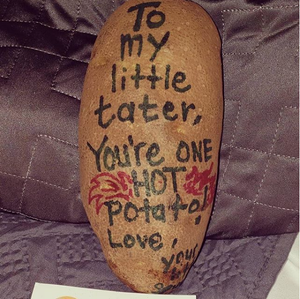 To
my
little
tater,
You're ONE
HOT
Potato!
Love,
your